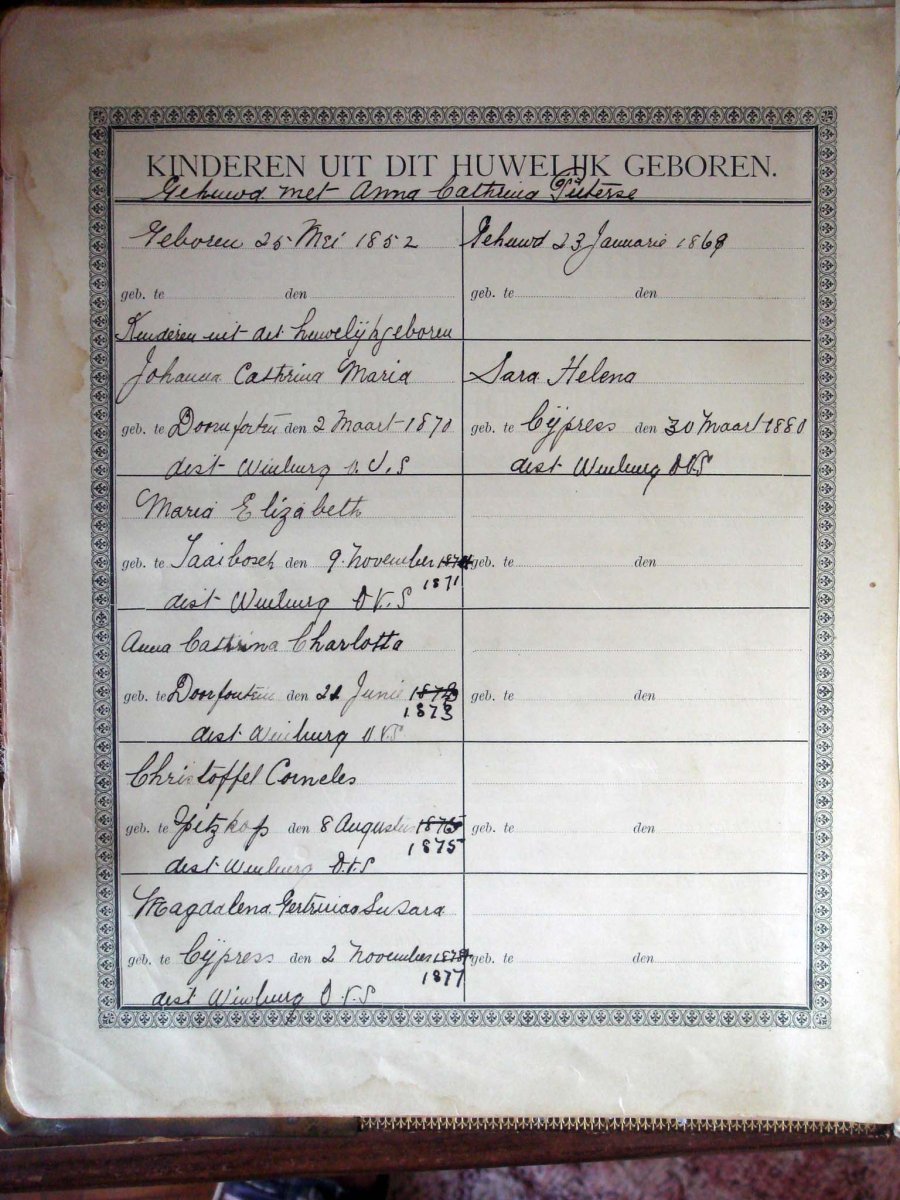 KINDEREN UIT DIT HUWELIJK GEBOREN.
Gehuwd met Anna Cathrina Pieterse
Geboren 25 Mei 1852
geb. te den
Kinderen uit dit huwelijk geboren
Johanna Cathrina Maria
geb. te den 2 Maart 1870
dist Winburg O.V.S
Maria Elizabeth
geb. te Taaibosch den 9 November
1871
dist Winburg O V.S
Anna Cathrina Charlotta
geb. te Doorfontein den 21 Junie
1873
dist Winburg O V S
Christoffel Corneles
geb. te Spitzkop den 8 Augustus
1875
dist Winburg O.V.S
Magdalena Gertruida Susara
geb. te Cÿpress den 2 November
1877
dist Winburg O.V.S
Gehuwd 23 Januarie 1869
geb. te den
Sara Helena
geb. te Cÿpress den 30 Maart 1880
dist Winburg O.V.S
geb. te den
geb. te den
geb. te den
geb. te den